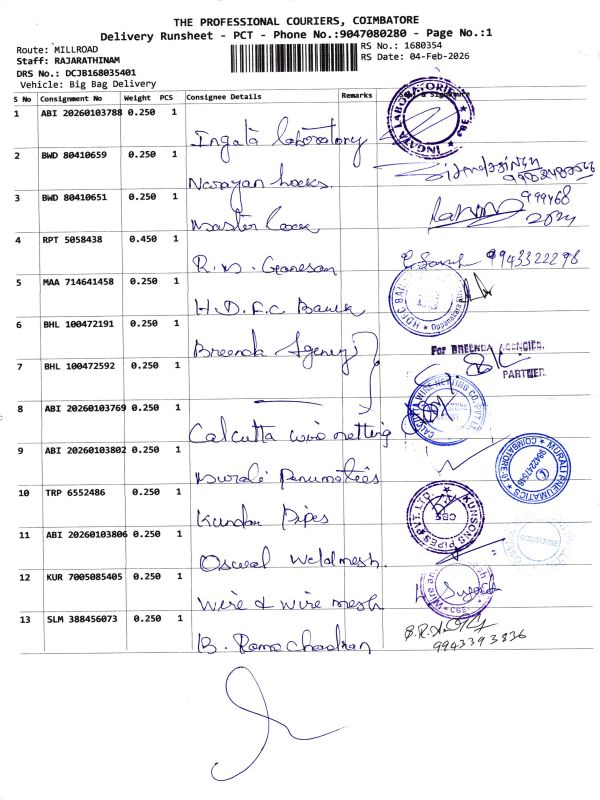 THE PROFESSIONAL COURIERS, COIMBATORE
Delivery Runsheet - PCT - Phone No.:9047080280 - Page No.:1
Route: MILLROAD
RS No.: 1680354
Staff: RAJARATHINAM
RS Date: 04-Feb-2026
DRS No.: DCJB168035401
Vehicle: Big Bag Delivery
S No Consignment No Weight PCS Consignee Details Remarks & Signature
1 ABI 20260103788 0.250 1 Ingata Laboratory
INGATA LABORATORIES CBE
2 BWD 80410659 0.250 1 Narayan hocks.
3 BWD 80410651 0.250 1 Master
999468
4 RPT 5058438 0.450 1 R.M. Ganesan
9943322298
5 MAA 714641458 0.250 1 H.D.F.C Bank
HDFC BANK
6 BHL 100472191 0.250 1 Breenda Agency
For BREENDA AGENCIES.
PARTNER.
7 BHL 100472592 0.250 1
8 ABI 20260103769 0.250 1 Calcutta wire netting
CALCUTTA WIRE NETTING CO. PVT LTD
9 ABI 20260103802 0.250 1 Murali Penumatics
MURALI PNEUMATICS COIMBATORE 9842247546
10 TRP 6552486 0.250 1 Kundan Pipes
KUNSONS PIPES PVT. LTD. CBS
11 ABI 20260103806 0.250 1 Oswal Weldmesh.
12 KUR 7005085405 0.250 1 Wire & Wire mesh
13 SLM 388456073 0.250 1 B. Ramachadran
9943393836